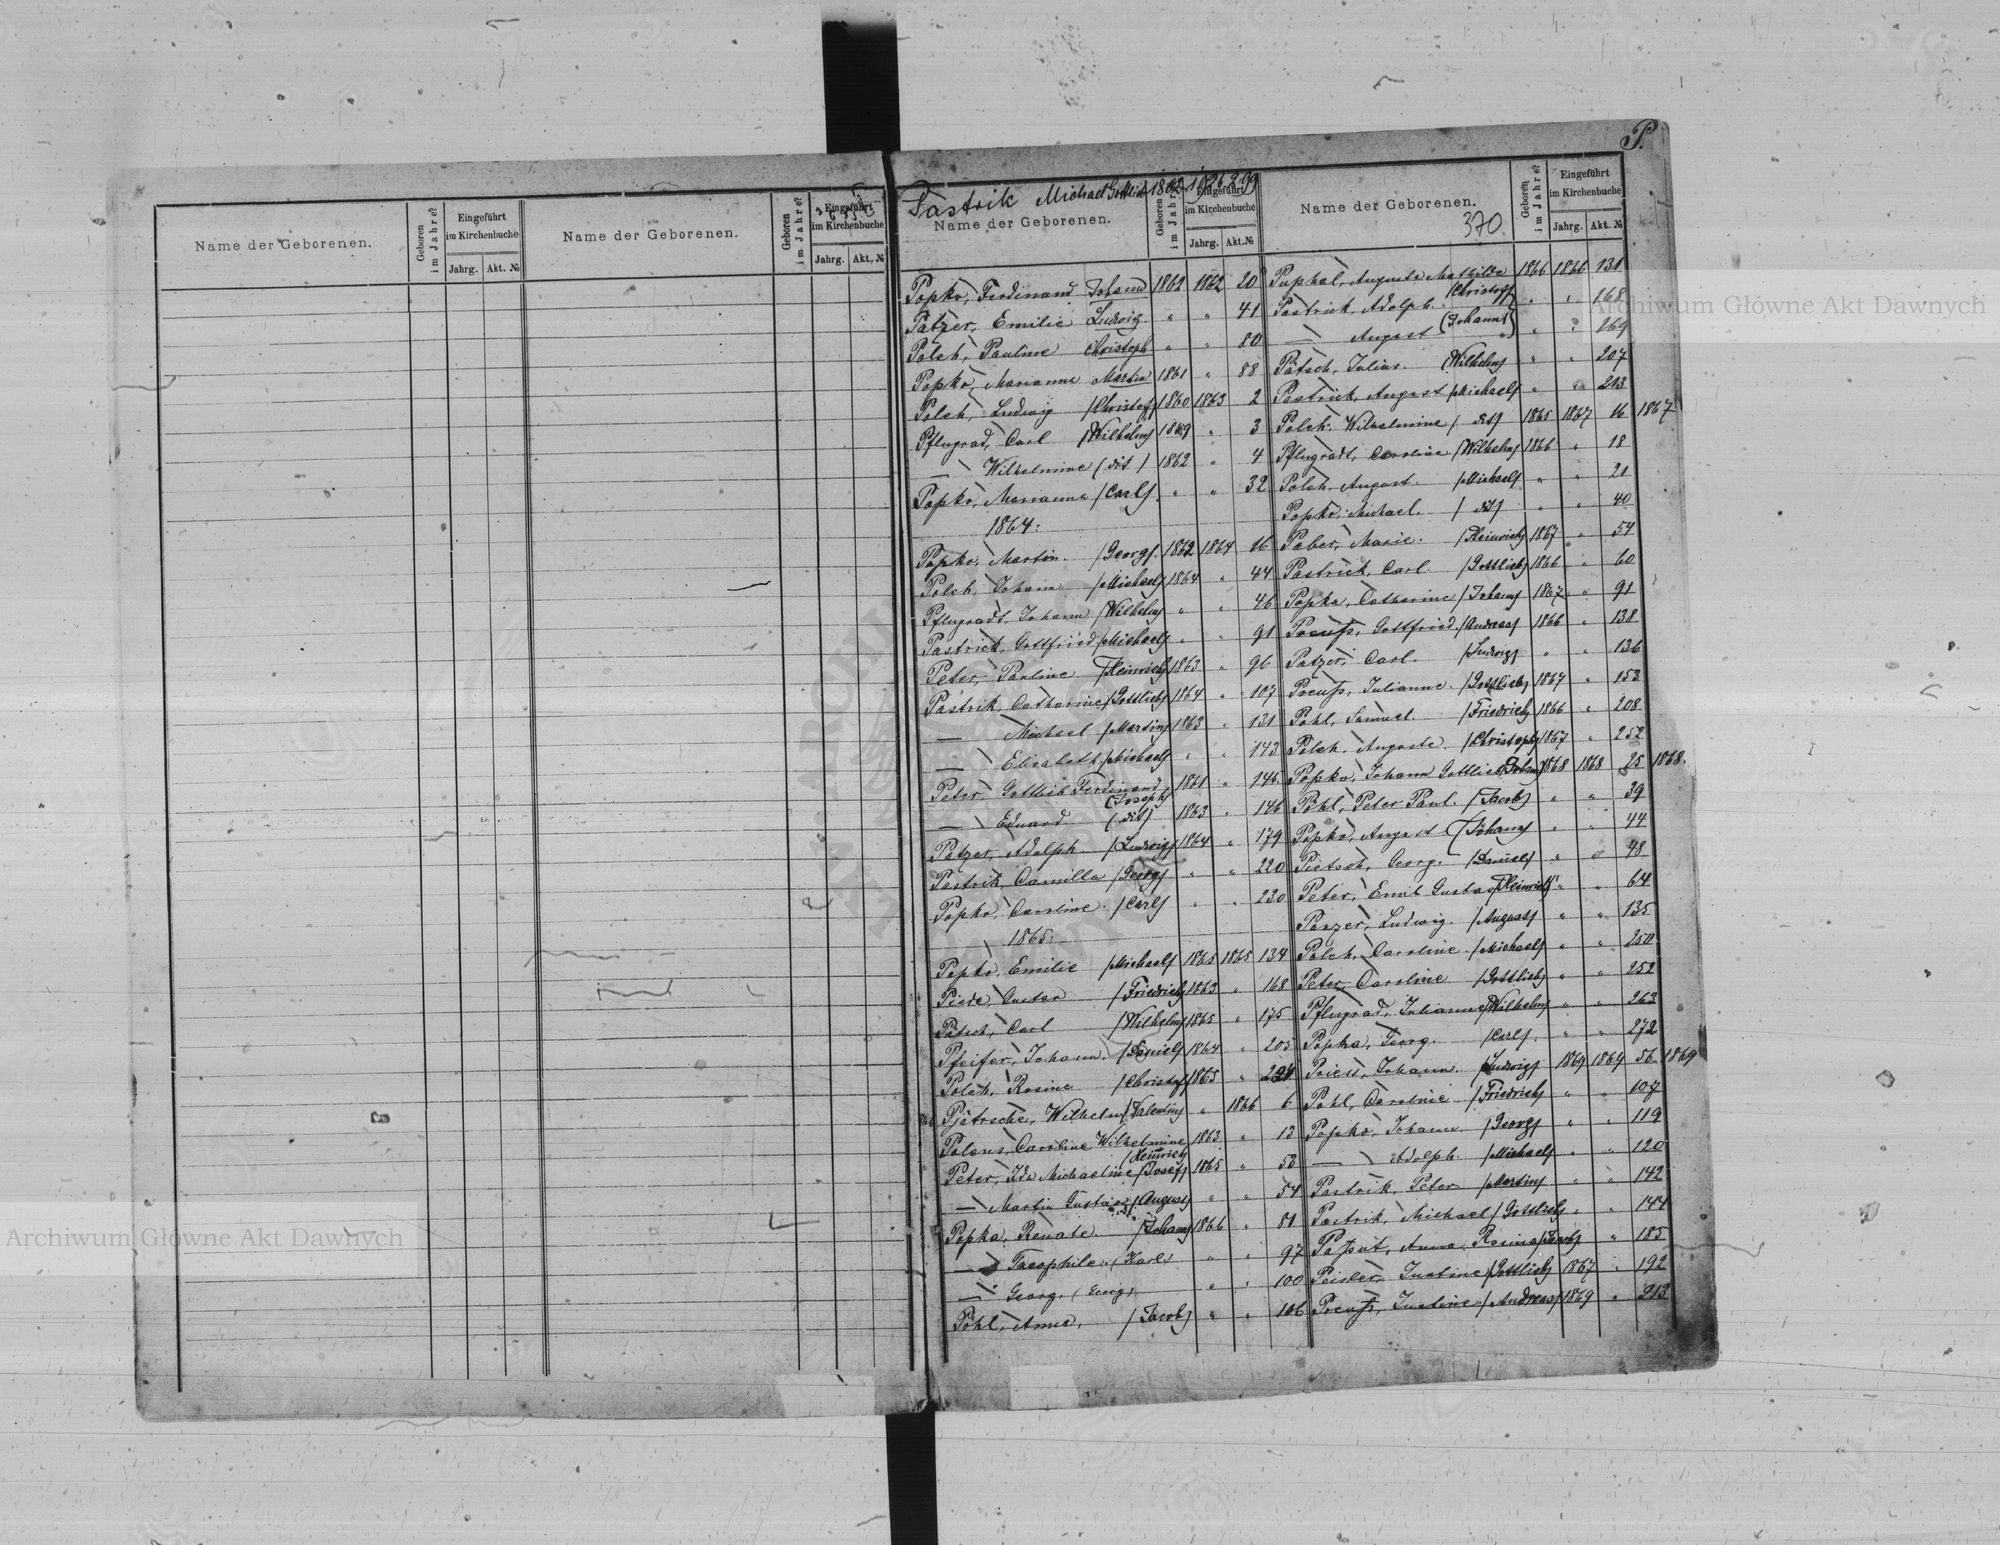 P.
Name der Geborenen.
Geboren im Jahre?
Eingeführt im Kirchenbuche
Jahrg. Akt. №
Name der Geborenen.
Geboren im Jahre?
Eingeführt im Kirchenbuche
Jahrg. Akt. №
Pastrik Michael Gottlieb 1862
Name der Geborenen.
Geboren im Jahre?
Eingeführt im Kirchenbuche
Jahrg. Akt. №
Popko, Ferdinand Johann 1862 1862 20
Patzer, Emilie Ludwig " " 41
Polch, Pauline Christoph " " 80
Popko, Marianne Martin 1861 " 88
Polch, Ludwig /Christof/ 1860 1863 2
Pflugrad, Carl /Wilhelm/ " 3
— Wilhelmine (dit) 1862 " 4
Popko, Marianna /Carl/ " " 32
1864:
Popko, Martin /Georg/ 1862 1864 16
Polch, Johann /Michael/ 1864 " 44
Pflugradt, Johann /Wilhelm/ " " 46
Pastrick, Gottfried /Michael/ " " 91
Peter, Pauline /Heinrich/ 1863 " 96
Pastrik, Catharine /Gottlieb/ 1864 " 107
— Michael /Martin/ 1863 " 131
— Elisabeth /Michael/ " " 143
Peter, Gottlieb Ferdinand (Joseph) 1861 " 145
— Eduard (dit) 1863 " 146
Patzer, Adolph /Ludwig/ 1864 " 179
Pastrik, Camilla /Georg/ " " 220
Popko, Caroline /Carl/ " " 230
1865:
Popko, Emilie /Michael/ 1865 1865 134
Gustav /Friedrich/ 1863 " 168
Pätsch, Carl /Wilhelm/ 1865 " 175
Pfeifer, Johann /Daniel/ 1864 " 205
Polch, Rosine /Christof/ 1865 "
Pjätrsche, Wilhelm /Valentin/ " 1866 6
Polens, Caroline Wilhelmine /Heinrich/ 1863 " 13
Peter, Ida Michaeline /Josef/ 1865 " 53
— Martin Gustav /August/ " " 54
Popka, Renate /Johann/ 1866 " 81
— Theophile (Karl) " " 97
— Georg (Georg) " " 100
Pohl, Anna, /Jacob/ " " 106
Name der Geborenen.
370
Geboren im Jahre?
Eingeführt im Kirchenbuche
Jahrg. Akt. №
Puphal, Auguste Mathilde /Christof/ 1866 1866 131
Pastrick, Adolph " " 168
— August (Johann) " " 169
Pätsch, Julius /Wilhelm/ " " 207
Pastrick, August /Michael/ " " 213
Polch, Wilhelmine / dit/ 1865 1867 16 1867
Pflugradt, Caroline /Wilhelm/ 1866 " 18
Polch, August /Michael/ " " 21
Popko, Michael / dit/ " " 40
Paber, Marie /Heinrich/ 1867 " 54
Pastrick, Carl /Gottlieb/ 1866 " 60
Popka, Catharine /Johann/ 1867 " 91
Preuß, Gottfried /Andreas/ 1866 " 131
Patzer, Carl /Ludwig/ " " 136
Preuß, Julianne /Gottlieb/ 1867 " 153
Pohl, Samuel /Friedrich/ 1866 " 208
Polch, Auguste /Christoph/ 1867 " 252
Popko, Johann Gottlieb /Johann/ 1868 1868 25 1868.
Pohl, Peter Paul /Jacob/ " " 39
Popko, August /Johann/ " " 44
Pietsch, Georg /Daniel/ " " 48
Peter, Emil Gustav /Heinrich/ " " 64
Panzer, Ludwig /August/ " " 135
Polch, Caroline /Michael/ " " 250
Peter, Caroline /Gottlieb/ " " 252
Pflugrad, Julianne /Wilhelm/ " " 263
Popka, Georg /Carl/ " " 272
Priess, Johann /Ludwig/ 1869 1869 56 1869
Pohl, Caroline /Friedrich/ " " 107
Popko, Johann /Georg/ " " 119
— Adolph /Michael/ " " 120
Pastrik, Peter /Martin/ " " 142
Pastrik, Michael /Gottlieb/ " " 144
Anna Rosina /Jacob/ " 185
Peisler, Justine /Gottlieb/ 1867 " 192
Preuß, Justine /Andreas/ 1869 " 213
Archiwum Główne Akt Dawnych
Archiwum Główne Akt Dawnych